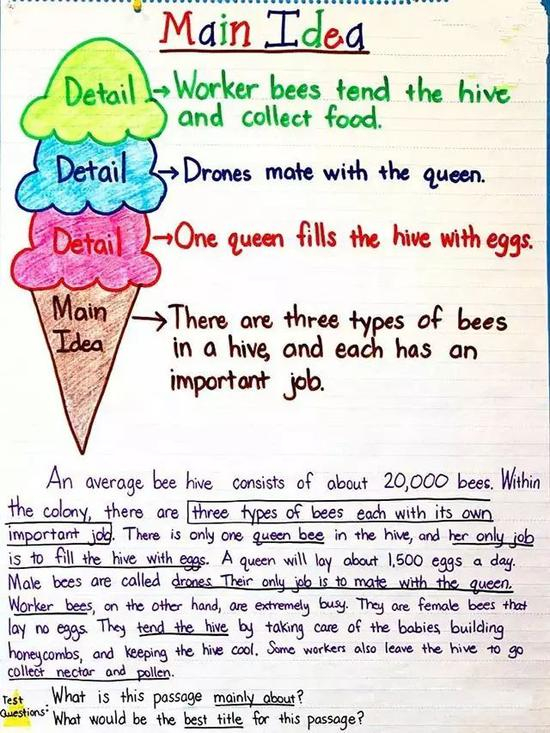 Main Idea
Detail → Worker bees tend the hive
and collect food.
Detail → Drones mate with the queen.
Detail → One queen fills the hive with eggs.
Main Idea → There are three types of bees
in a hive, and each has an
important job.
An average bee hive consists of about 20,000 bees. Within
the colony, there are three types of bees each with its own
important job. There is only one queen bee in the hive, and her only job
is to fill the hive with eggs. A queen will lay about 1,500 eggs a day.
Male bees are called drones. Their only job is to mate with the queen.
Worker bees, on the other hand, are extremely busy. They are female bees that
lay no eggs. They tend the hive by taking care of the babies, building
honeycombs, and keeping the hive cool. Some workers also leave the hive to go
collect nectar and pollen.
Test Questions:
What is this passage mainly about?
What would be the best title for this passage?